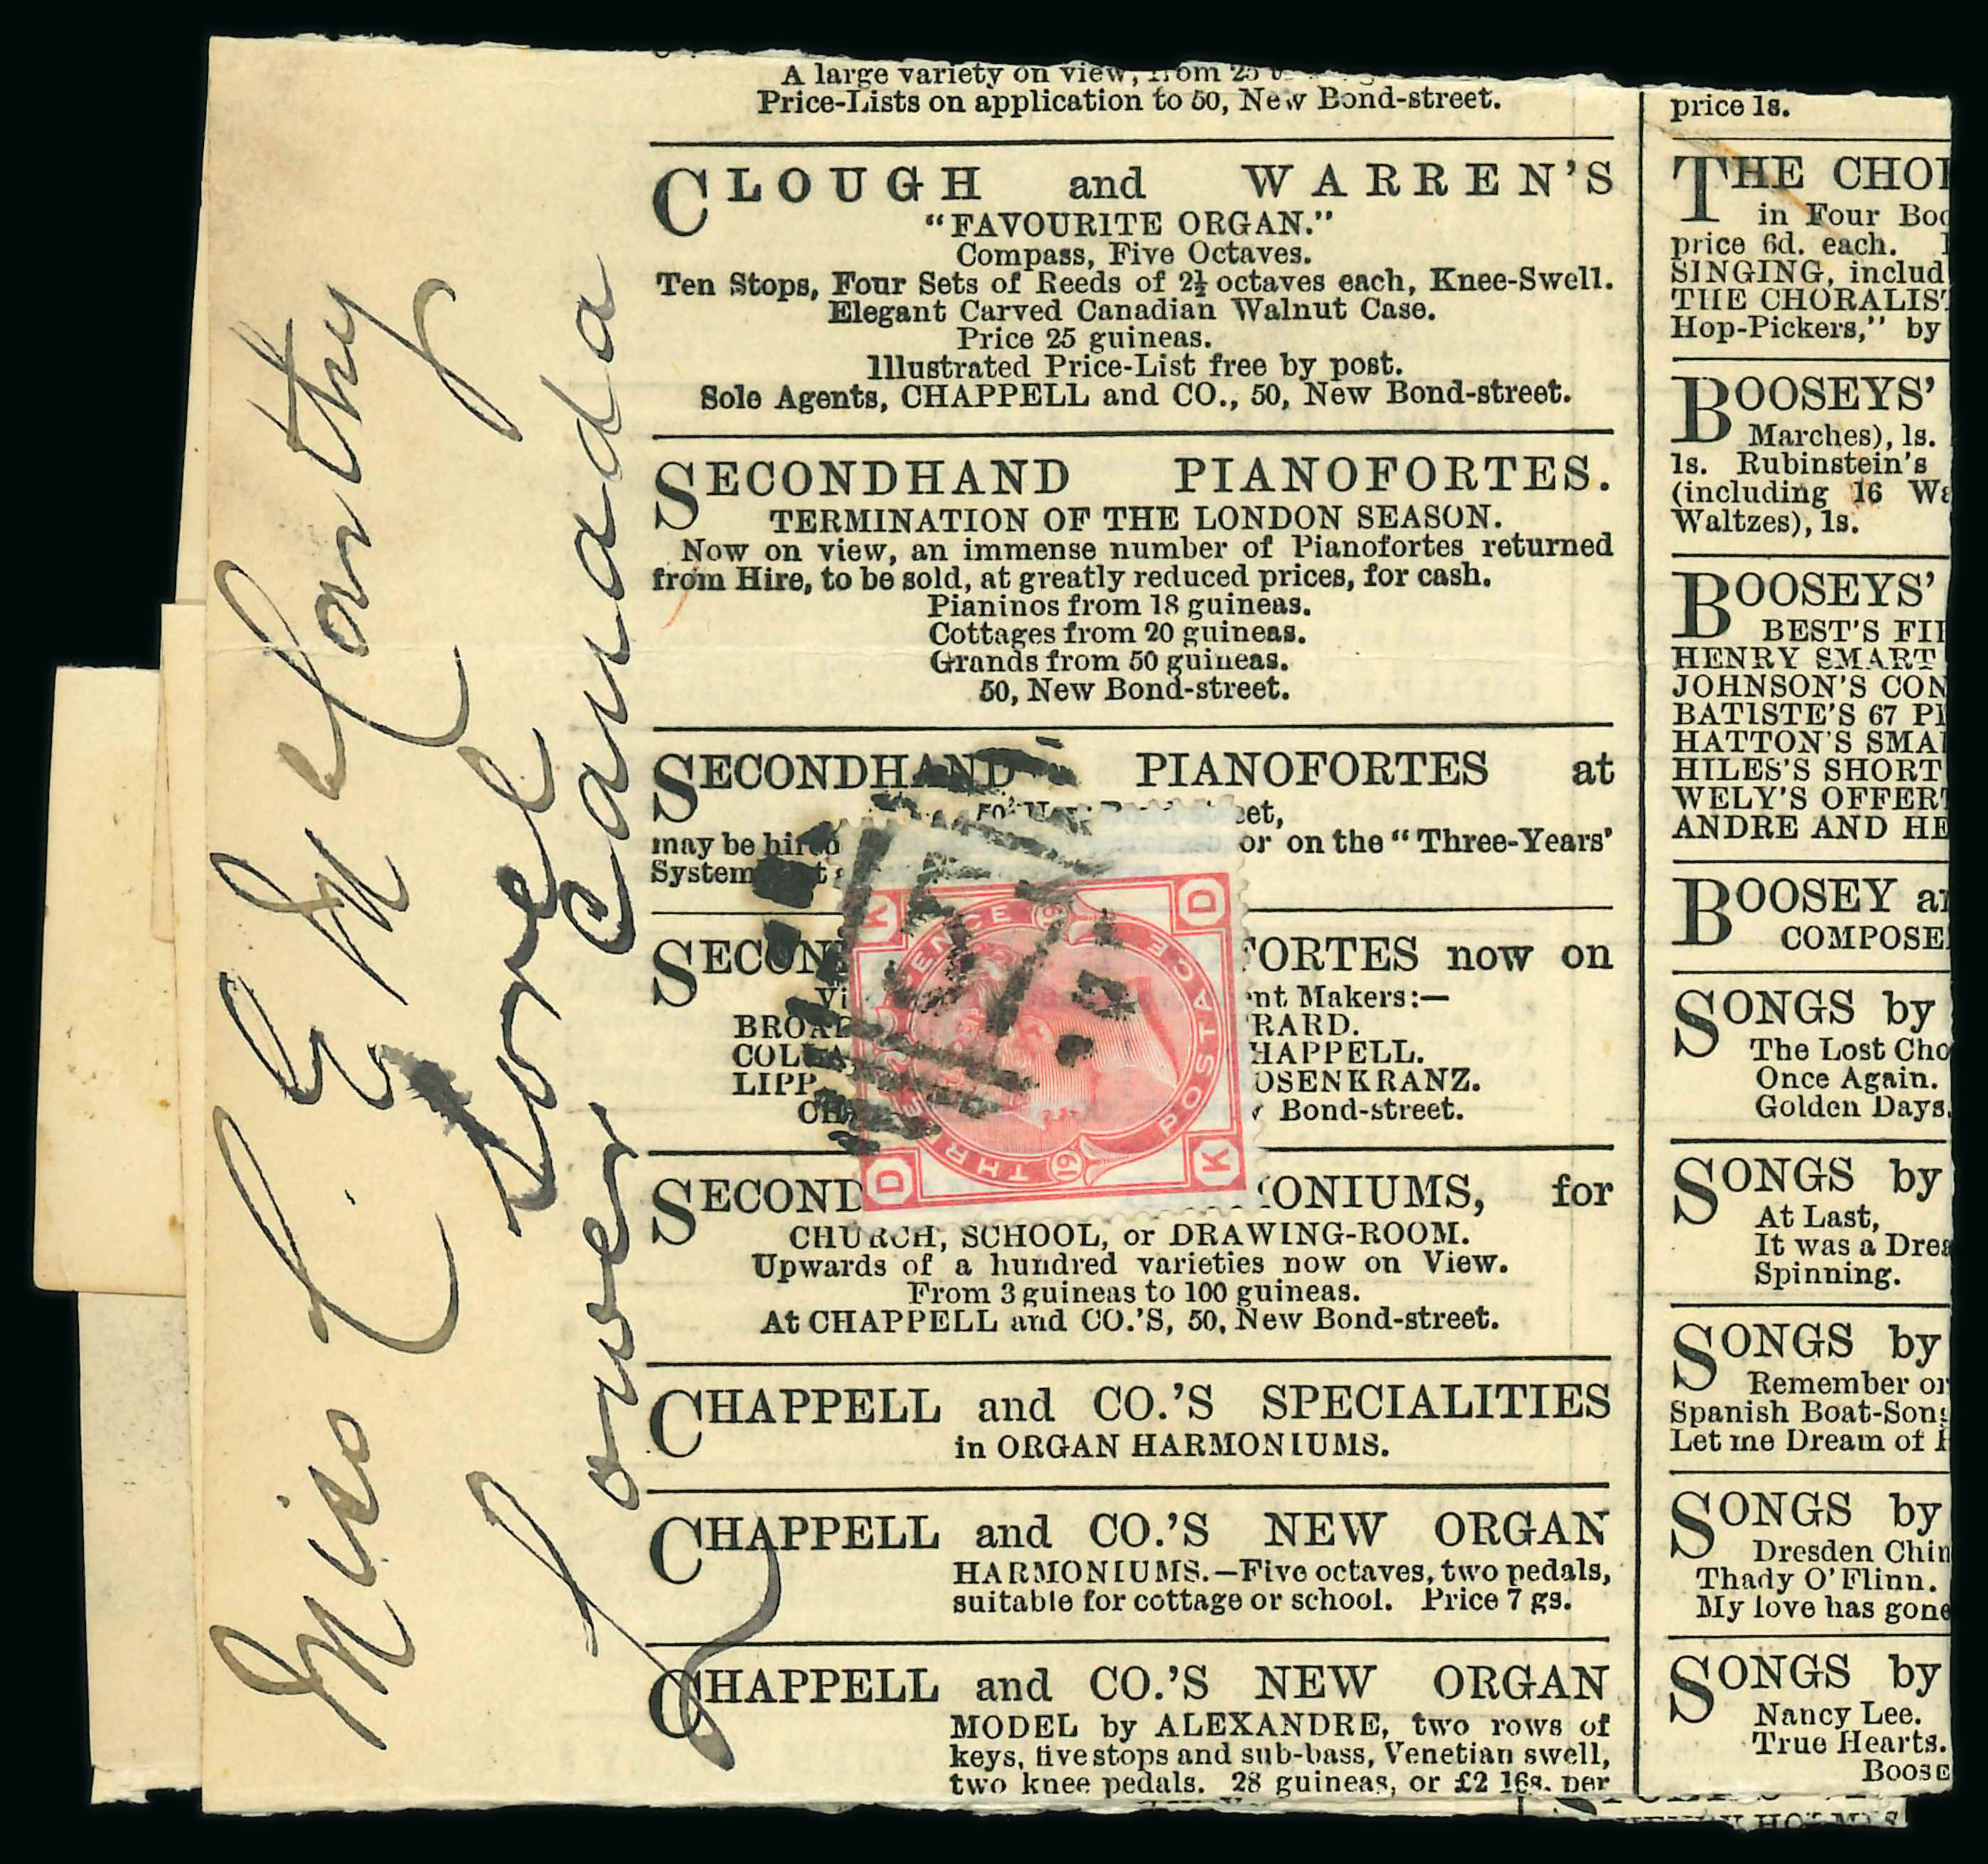 A large variety on view, from 25
Price-Lists on application to 50, New Bond-street.
CLOUGH and WARREN'S
"FAVOURITE ORGAN."
Compass, Five Octaves.
Ten Stops, Four Sets of Reeds of 2½ octaves each, Knee-Swell.
Elegant Carved Canadian Walnut Case.
Price 25 guineas.
Illustrated Price-List free by post.
Sole Agents, CHAPPELL and CO., 50, New Bond-street.
SECONDHAND PIANOFORTES.
TERMINATION OF THE LONDON SEASON.
Now on view, an immense number of Pianofortes returned
from Hire, to be sold, at greatly reduced prices, for cash.
Pianinos from 18 guineas.
Cottages from 20 guineas.
Grands from 50 guineas.
50, New Bond-street.
SECONDHAND PIANOFORTES at
50, New Bond-street,
may be hired or on the "Three-Years'
System
SECON FORTES now on
Vi nt Makers:—
BROAD RARD.
COLLA HAPPELL.
LIPP OSENKRANZ.
CH Bond-street.
SECOND ONIUMS, for
CHURCH, SCHOOL, or DRAWING-ROOM.
Upwards of a hundred varieties now on View.
From 3 guineas to 100 guineas.
At CHAPPELL and CO.'S, 50, New Bond-street.
CHAPPELL and CO.'S SPECIALITIES
in ORGAN HARMONIUMS.
CHAPPELL and CO.'S NEW ORGAN
HARMONIUMS.—Five octaves, two pedals,
suitable for cottage or school. Price 7 gs.
CHAPPELL and CO.'S NEW ORGAN
MODEL by ALEXANDRE, two rows of
keys, five stops and sub-bass, Venetian swell,
two knee pedals. 28 guineas, or £2 16s. per
price 1s.
THE CHO
in Four Boo
price 6d. each.
SINGING, includ
THE CHORALIS
Hop-Pickers," by
BOOSEYS'
Marches), 1s.
1s. Rubinstein's
(including 16 Wa
Waltzes), 1s.
BOOSEYS'
BEST'S FI
HENRY SMART
JOHNSON'S CON
BATISTE'S 67 PI
HATTON'S SMA
HILES'S SHORT
WELY'S OFFERT
ANDRE AND HE
BOOSEY a
COMPOSE
SONGS by
The Lost Cho
Once Again.
Golden Days.
SONGS by
At Last,
It was a Drea
Spinning.
SONGS by
Remember or
Spanish Boat-Song
Let me Dream of
SONGS by
Dresden Chin
Thady O'Flinn.
My love has gone
SONGS by
Nancy Lee.
True Hearts.
Boose
Miss C. E. McCarthy
Sorel
Lower Canada
K D
POSTAGE
THREE PENCE
19 19
D K